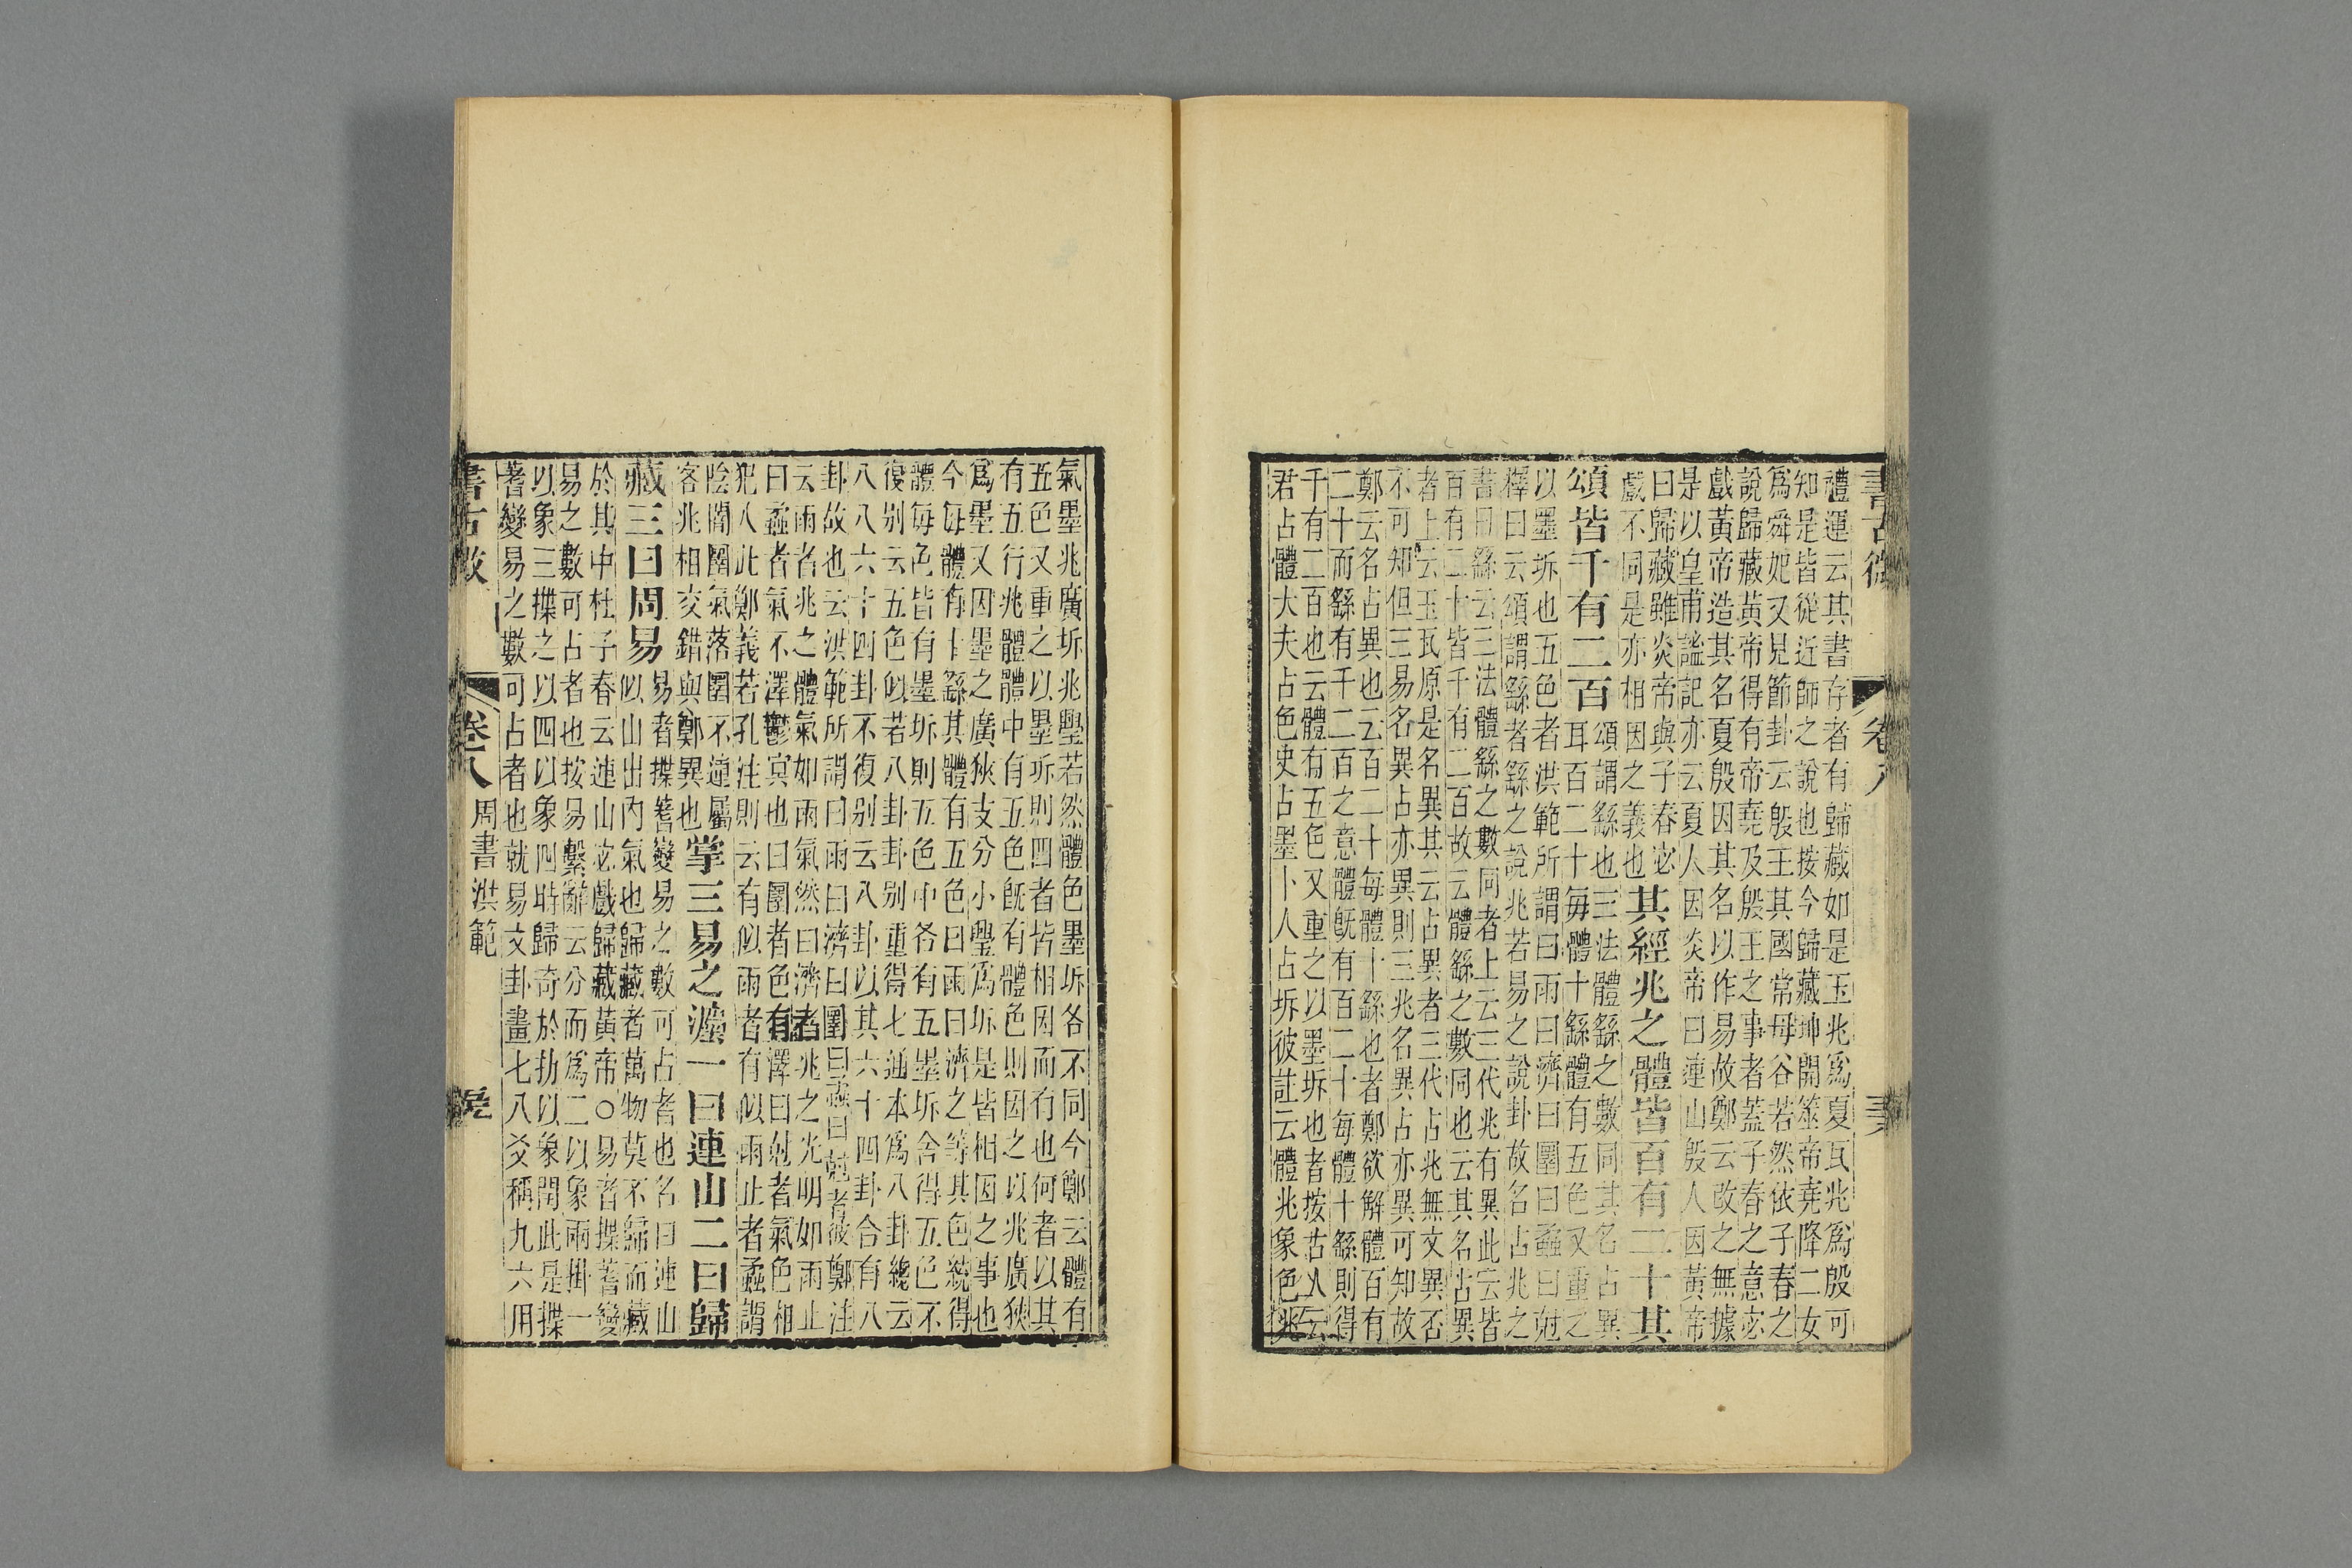 書古微 卷八
禮運云其書存者有歸藏如是玉兆爲夏瓦兆爲殷可
知是皆從近師之說也按今歸藏坤開筮帝堯降二女
爲舜妃又見節卦云殷王其國常毋谷若然依子春之
說歸藏黃帝得有帝堯及殷王之事者蓋子春之意宓
戲黃帝造其名夏殷因其名以作易故鄭云改之無據
是以皇甫謐記亦云夏人因炎帝曰連山殷人因黃帝
曰歸藏雖炎帝與子春宓
戲不同是亦相因之義也
其經兆之體皆百有二十其
頌皆千有二百
頌謂繇也三法體繇之數同其名占異
耳百二十每體十繇體有五色又重之
以墨坼也五色者洪範所謂曰雨曰濟曰圛曰蟊曰尅
釋曰云頌謂繇者繇之說兆若易之說卦故名占兆之
書曰繇云三法體繇之數同者上云三代兆有異此云皆
百有二十皆千有二百故云體繇之數同也云其名占異
者上云玉瓦原是名異其云占異者三代占兆無文異否
不可知但三易名異占亦異則三兆名異占亦異可知故
鄭云名占異也云百二十每體十繇也者鄭欲解體百有
二十而繇有千二百之意體旣有百二十每體十繇則得
千有二百也云體有五色又重之以墨坼也者按古人云
君占體大夫占色史占墨卜人占坼彼註云體兆象色兆
氣墨兆廣坼兆璺若然體色墨坼各不同今鄭云體有
五色又重之以墨坼則四者皆相因而有也何者以其
有五行兆體體中有五色旣有體色則因之以兆廣狹
爲墨又因墨之廣狹支分小璺爲坼是皆相因之事也
今每體有十繇其體有五色曰雨曰濟之等其色統得
體每色皆有墨坼則五色中各有五墨坼含得五色不
復别云五色似若八卦卦别重得七通本爲八卦總云
八八六十四卦不復别云八卦以其六十四卦合有八
卦故也云洪範所謂曰雨曰濟曰圛曰蟊曰尅者彼鄭注
云雨者兆之體氣如雨氣然曰濟者兆之光明如雨止
曰蟊者氣不澤鬱冥也曰圛者色有澤曰尅者氣色相
犯入此鄭義若孔注則云有似雨者有似雨止者蟊謂
陰闇圛氣落圛不連屬
客兆相交錯與鄭異也
掌三易之灋一曰連山二曰歸
藏三曰周易
易者揲蓍變易之數可占者也名曰連山
似山出內氣也歸藏者萬物莫不歸而藏
於其中杜子春云連山宓戲歸藏黃帝○易者揲蓍變
易之數可占者也按易繫辭云分而爲二以象兩掛一
以象三揲之以四以象四時歸奇於扐以象閏此是揲
蓍變易之數可占者也就易文卦畫七八爻稱九六用
書古微 卷八 周書洪範